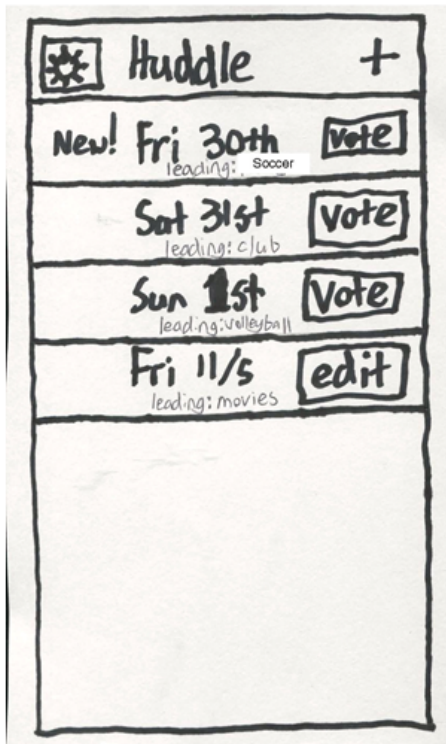 Huddle +
New! Fri 30th vote
leading: Soccer
Sat 31st vote
leading: club
Sun 1st Vote
leading: volleyball
Fri 11/5 edit
leading: movies